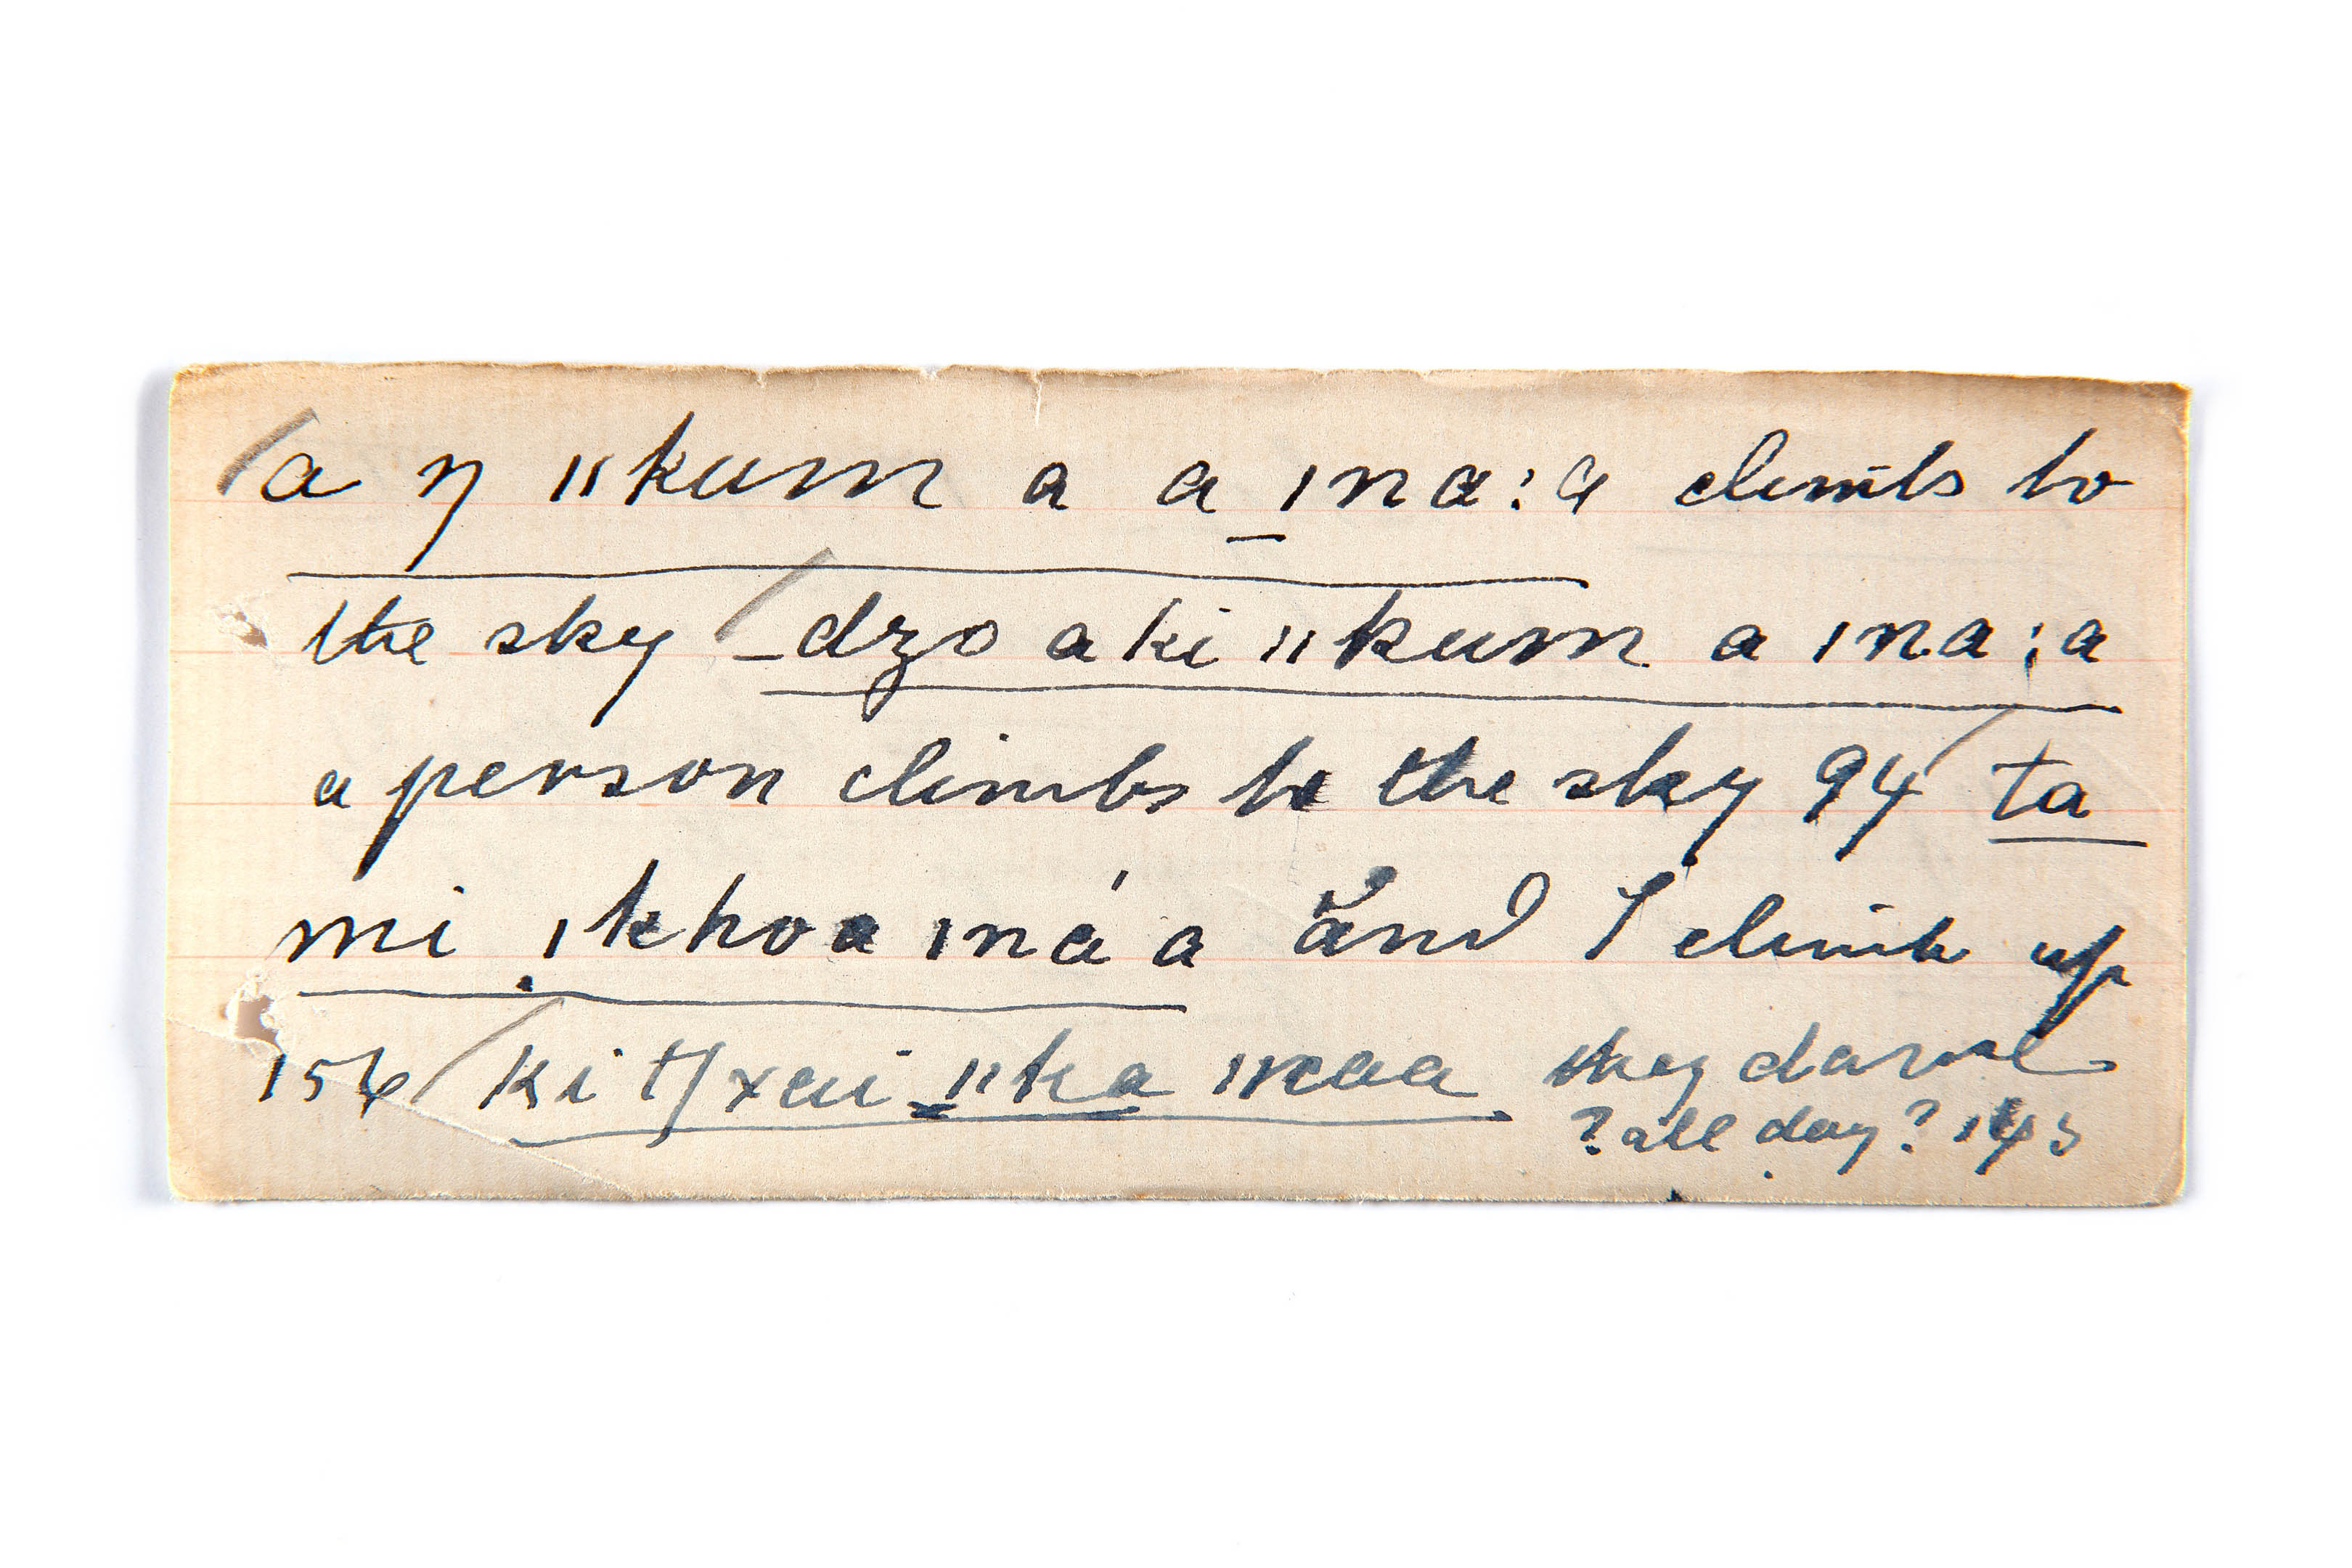 /a ŋ ǁkum a a_ǀna:a climbs to
the sky /_dzo a ki ǁkum a ǀna:a
a person climbs to the sky 94 / ta
mi ˌǀkhoa ǀná a ănd I climb up
156 / ki tʃxai ǁka ǁxaa they dance
? all day? 145